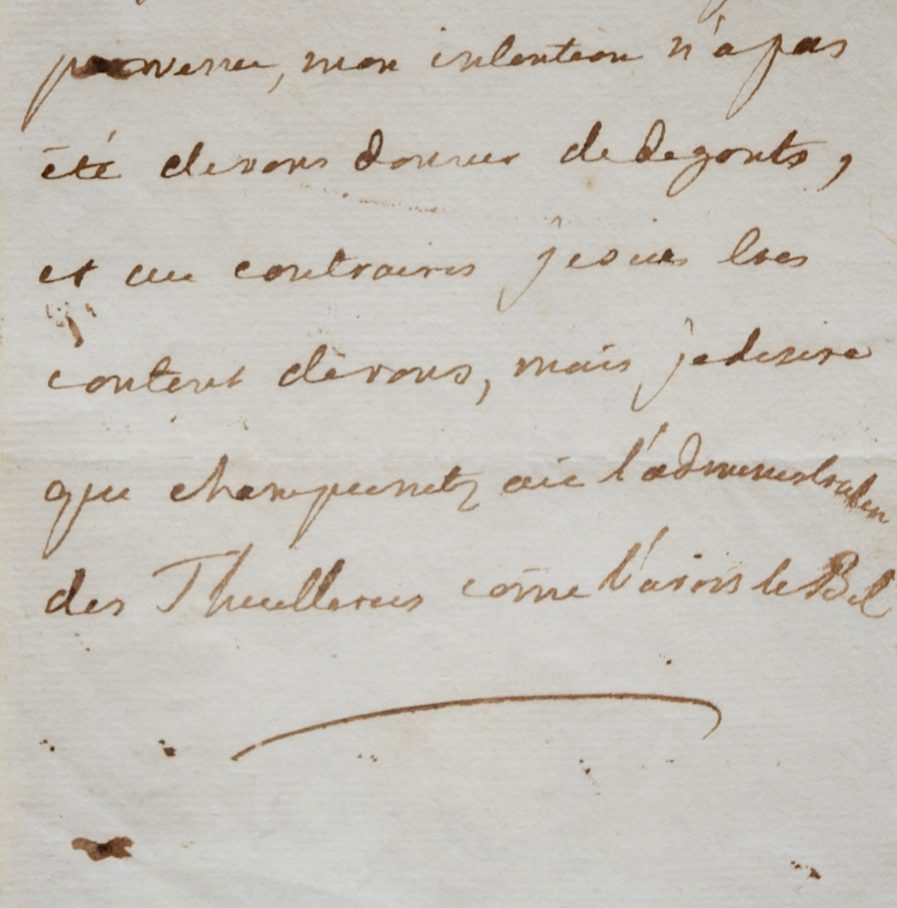 , mon intention n'a pas
été de vous donner de degouts,
et au contraires je suis tres
content de vous, mais je desire
que champcenetz aie l'administration
des Thuilleries come l'avois le Bel